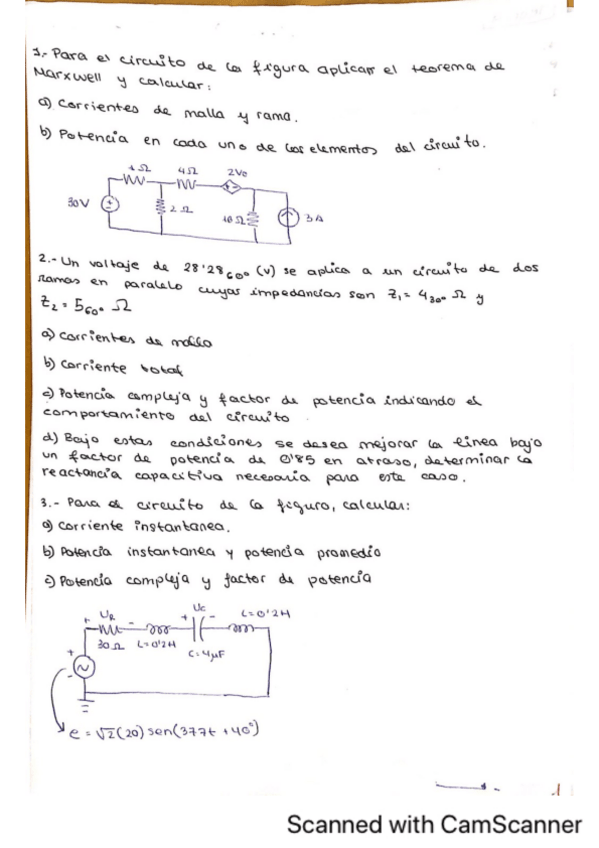 1.- Para el circuito de la figura aplicar el teorema de
Marxwell y calcular:
a) Corrientes de malla y rama.
b) Potencia en cada uno de los elementos del circuito.
4Ω 2Vo
30V 2Ω 10Ω 3A
2.- Un voltaje de 28'28 60° (V) se aplica a un circuito de dos
ramas en paralelo cuyas impedancias son Z1 = 4 30° Ω y
Z2 = 5 60° Ω
a) corrientes de malla
b) corriente total
c) Potencia compleja y factor de potencia indicando el
comportamiento del circuito
d) Bajo estas condiciones se desea mejorar la linea bajo
un factor de potencia de 0'85 en atraso, determinar la
reactancia capacitiva necesaria para este caso.
3.- Para el circuito de la figura, calcular:
a) corriente instantanea.
b) Potencia instantanea y potencia promedio
c) Potencia compleja y factor de potencia
+ UR - + Uc - L=0'2H
30Ω L=0'2H C=4μF
+
-
e = √2(20) sen(377t + 40°)
Scanned with CamScanner